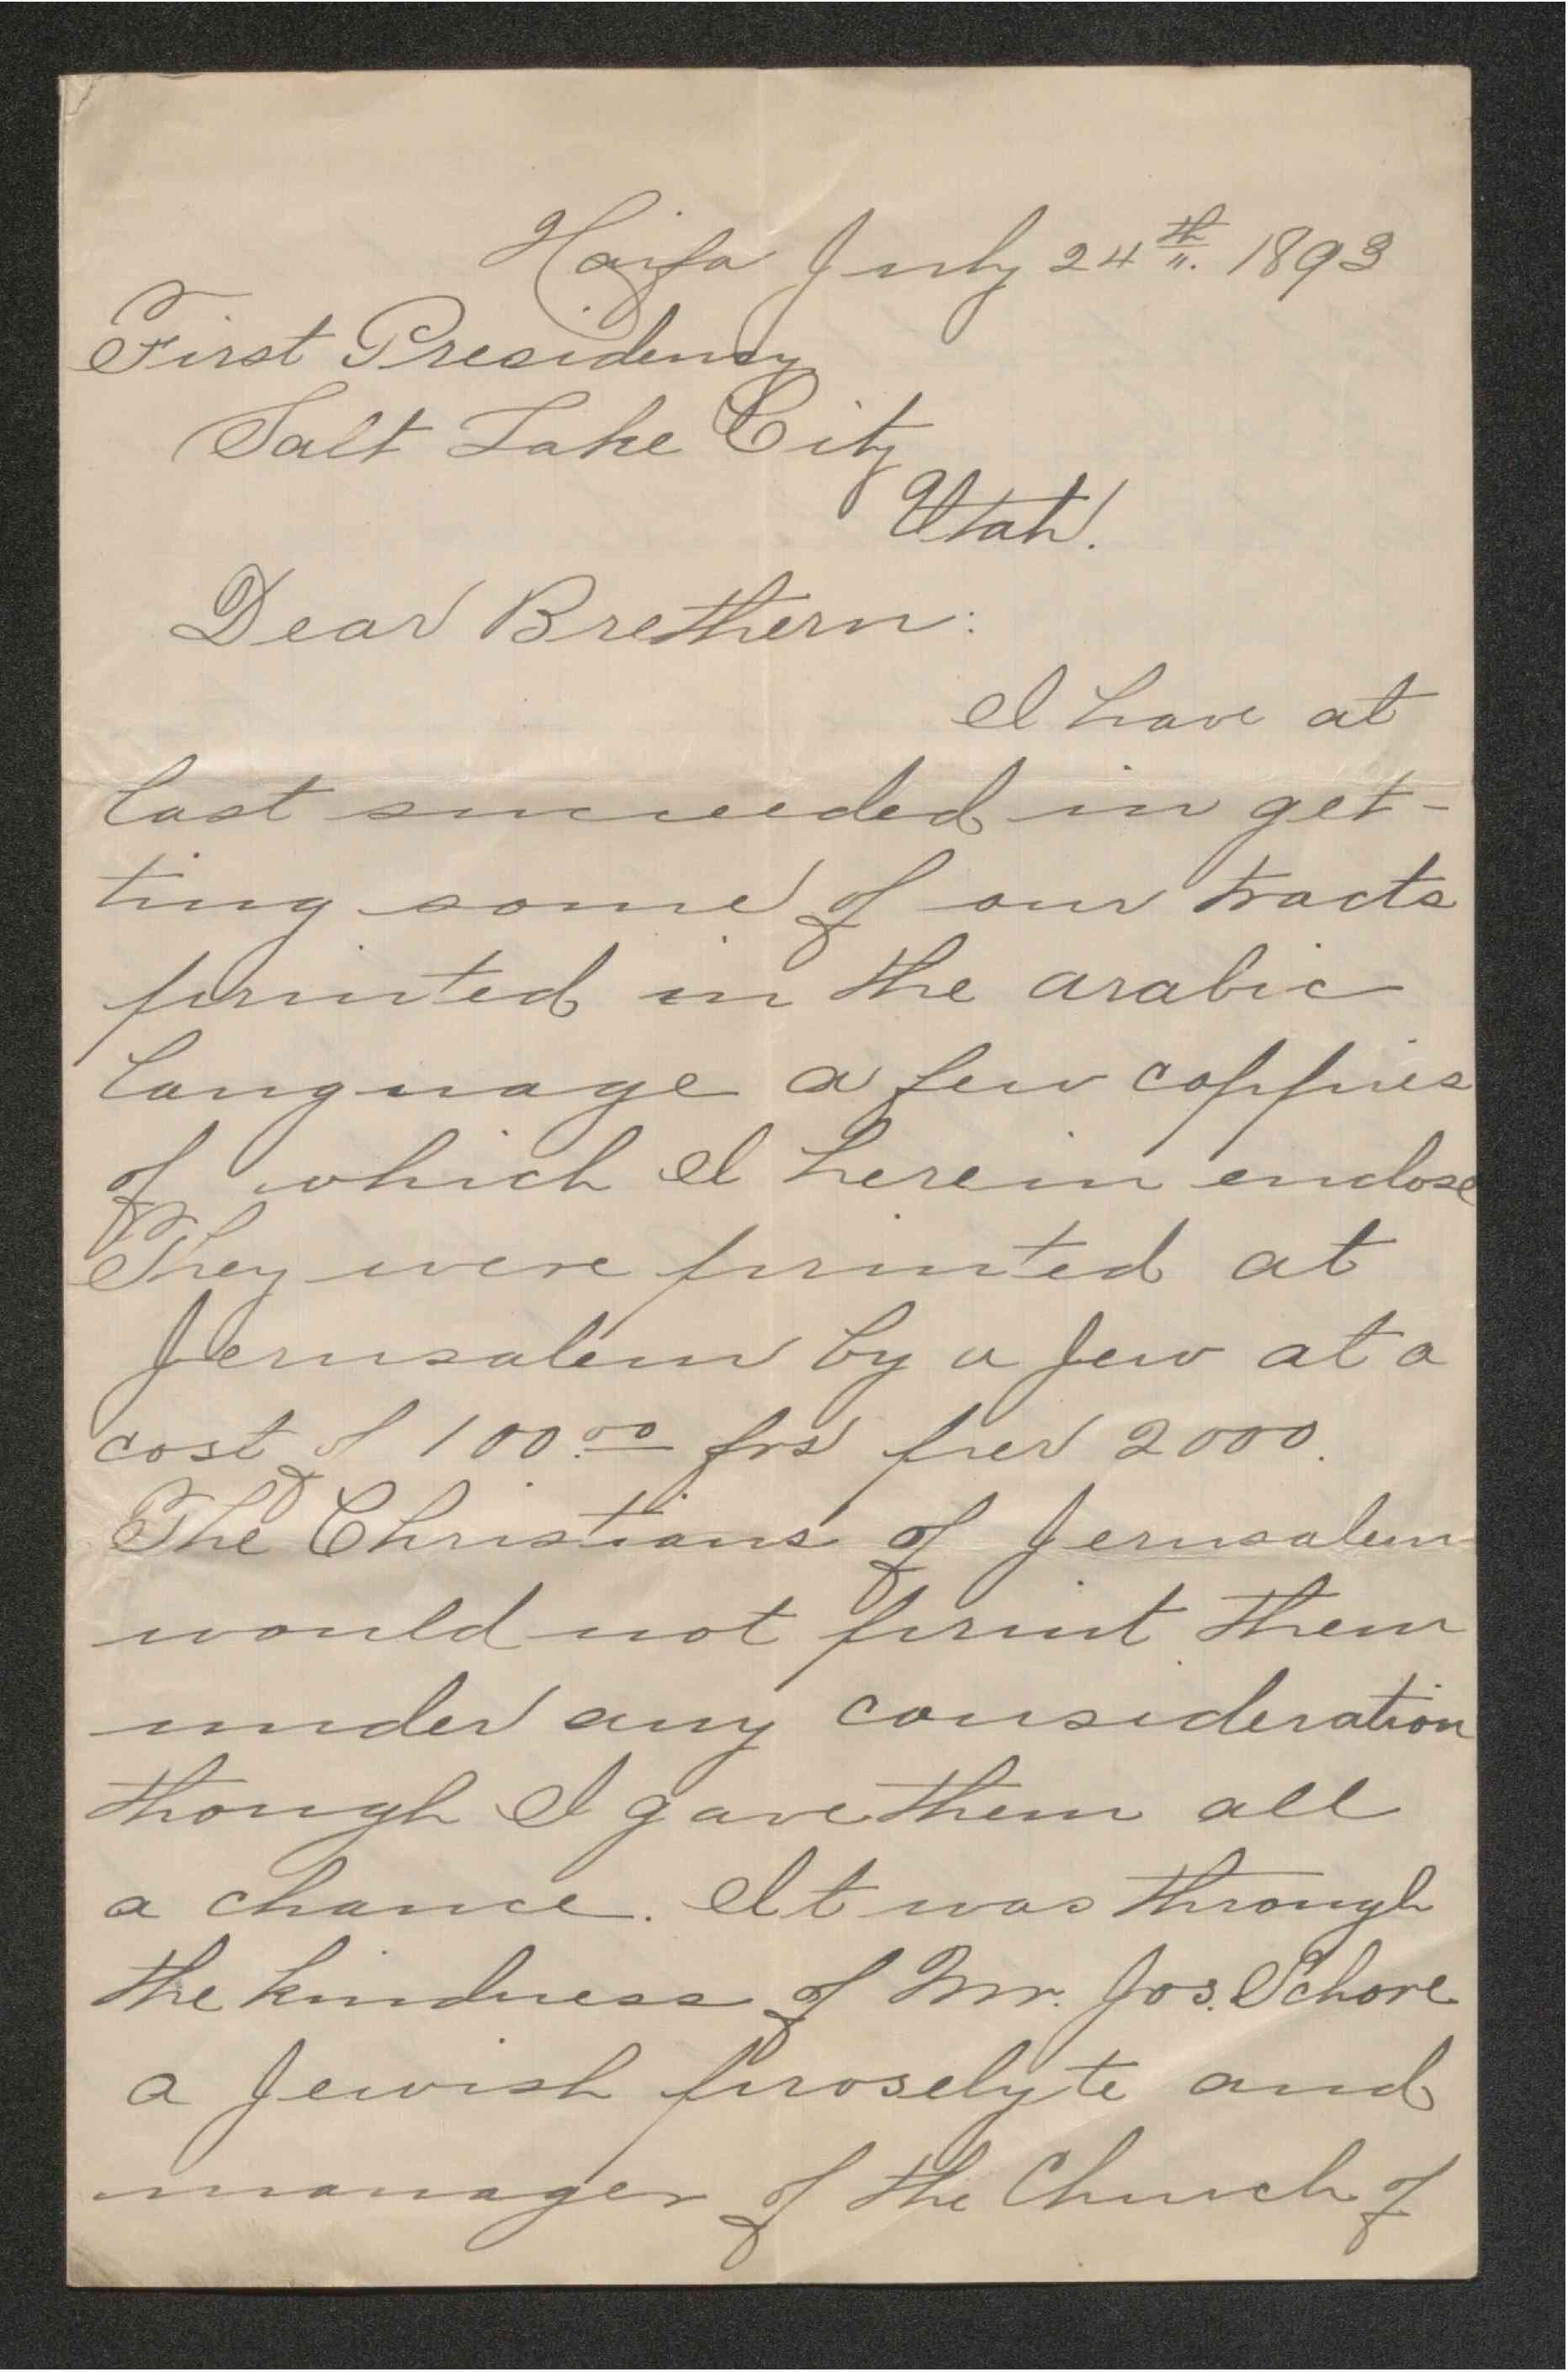 Haifa July 24th. 1893
First Presidency
Salt Lake City
Utah.
Dear Brethern:
I have at
last succeeded in get-
ting some of our tracts
printed in the arabic
language a few coppies
of which I herein enclose
They were printed at
Jerusalem by a Jew at a
cost of 100.00 frs per 2000.
The Christians of Jerusalem
would not print them
under any consideration
though I gave them all
a chance. It was through
the kindness of Mr. Jos. Schore
a Jewish proselyte and
manager of the Church of